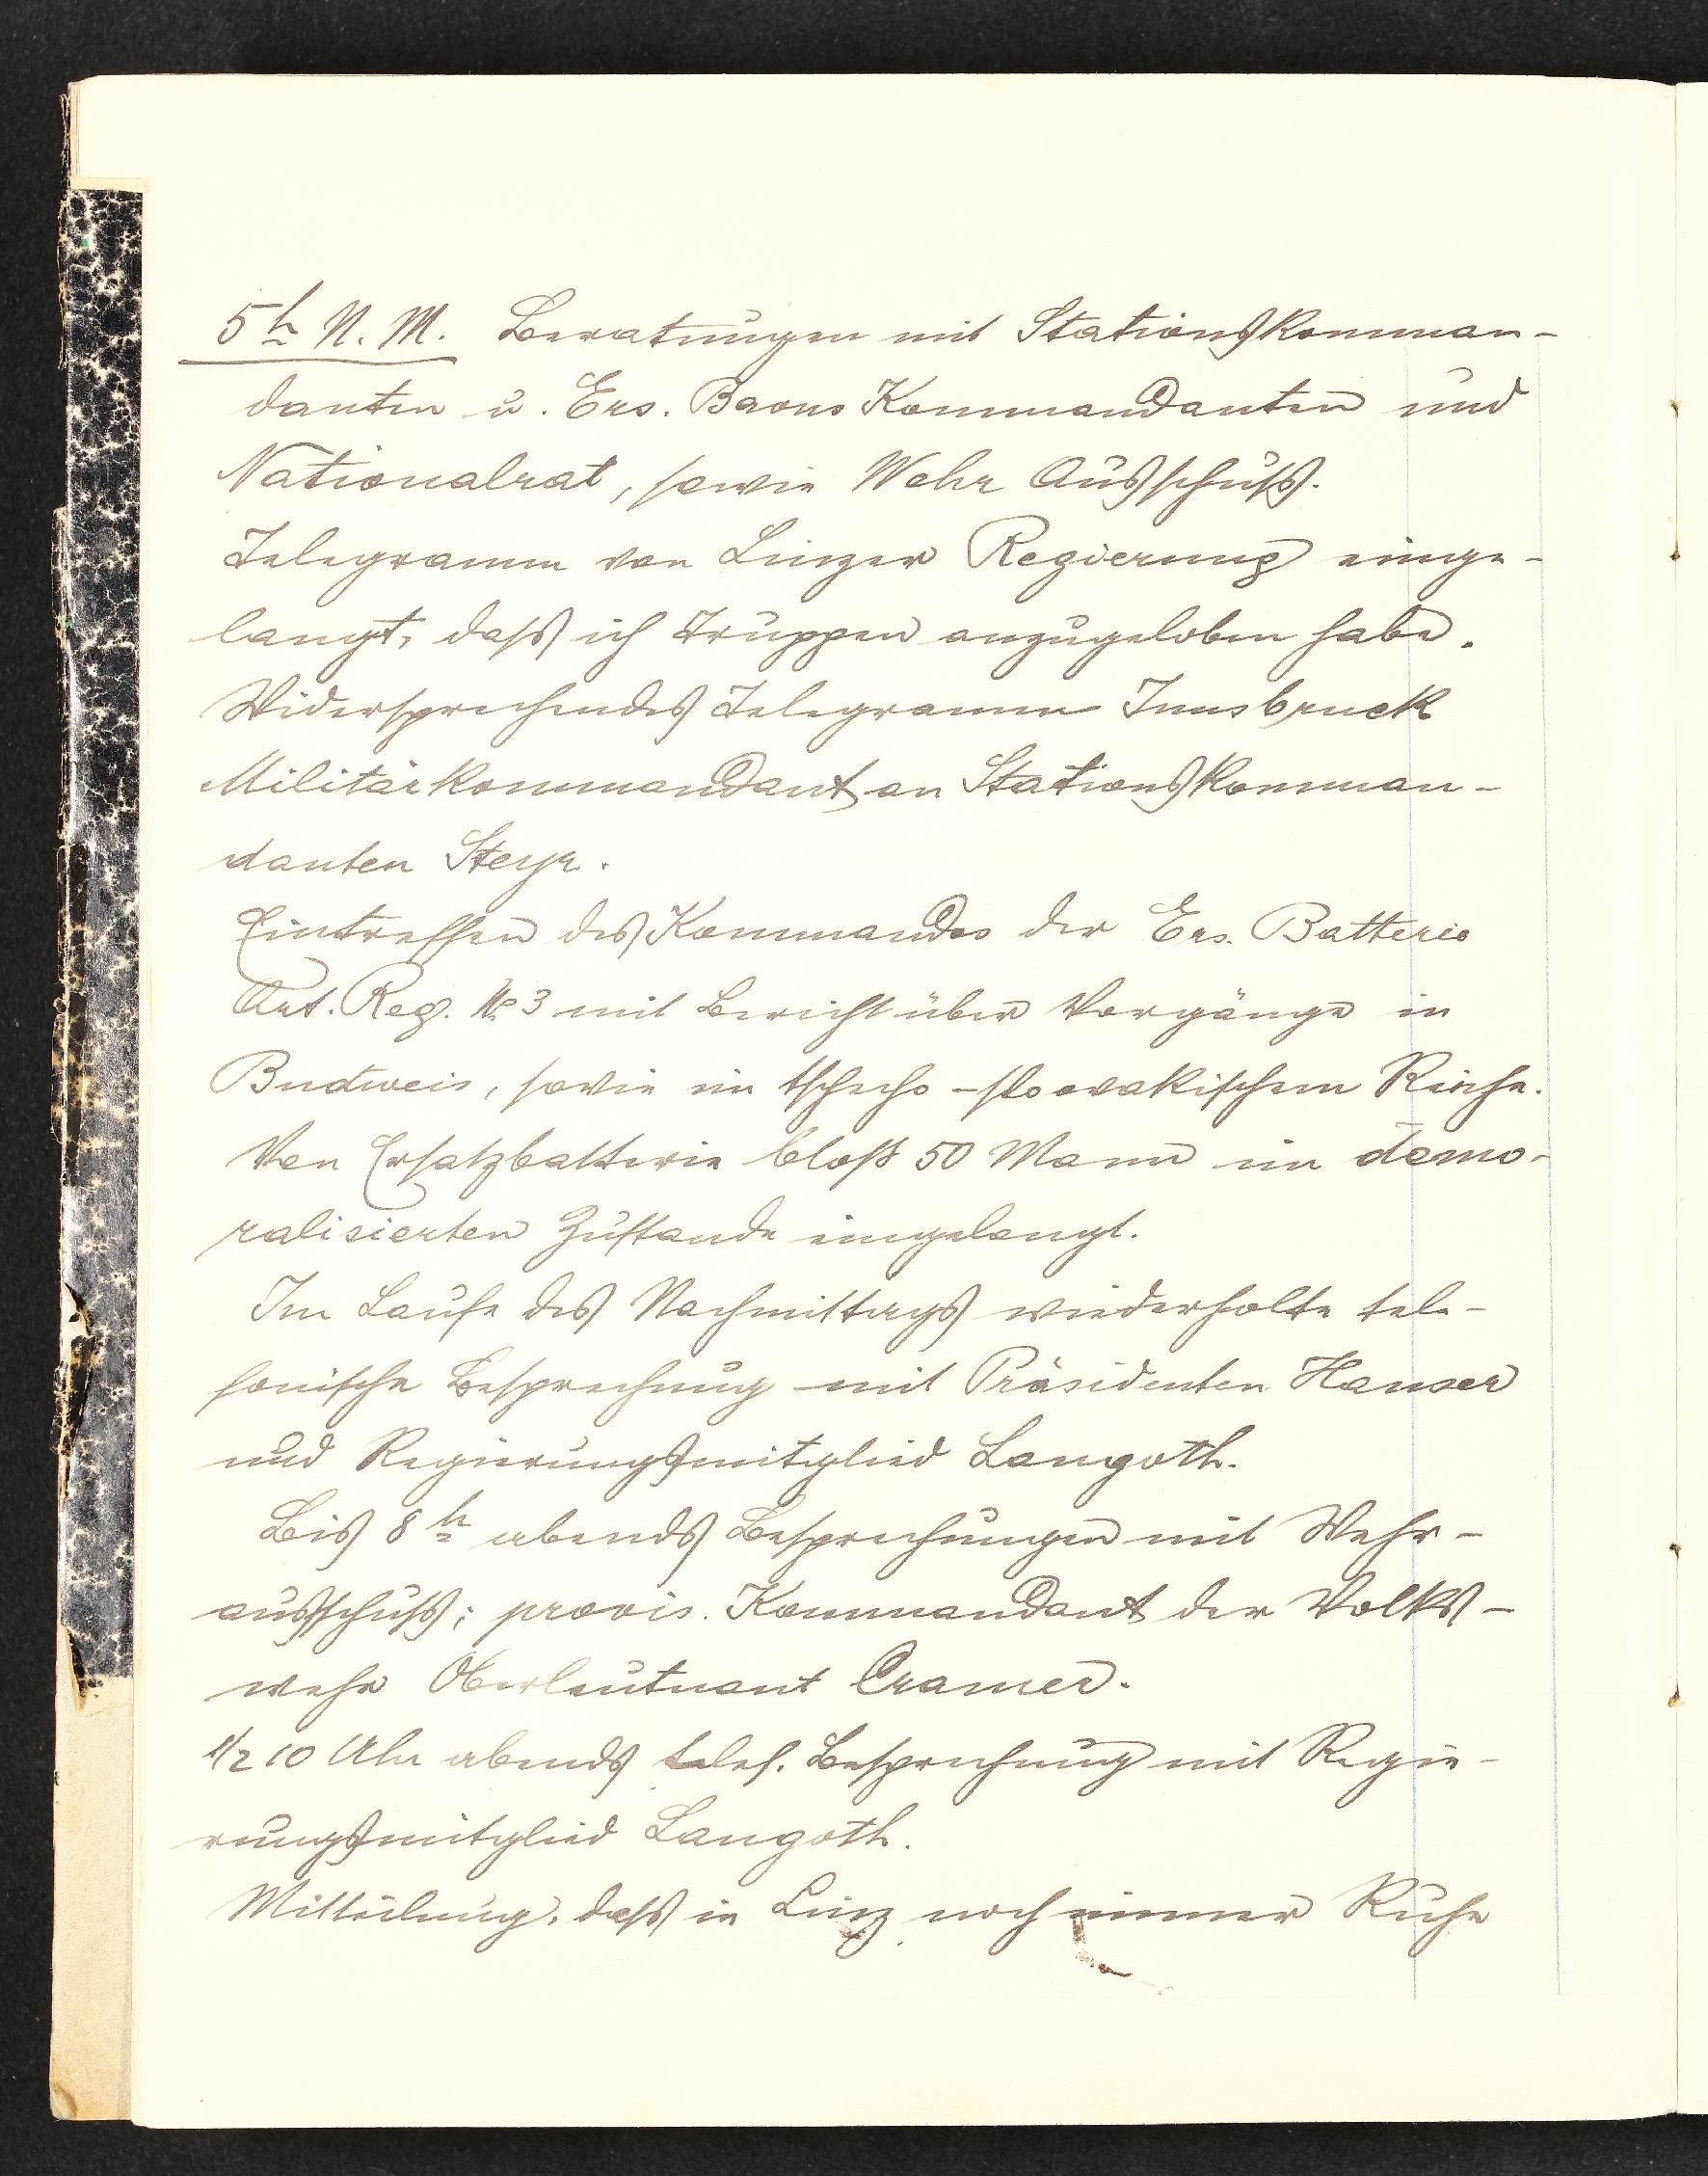 5h N. M. Beratungen mit Stationskomman-
danten u. Ers. Baons Kommandanten und
Nationalrat, sowie Wehr Ausschuß.
Telegramm von Linzer Regierung einge-
langt, daß ich Truppen anzugeloben habe.
Widersprechendes Telegramm Innsbruck
Militärkommandant an Stationskomman-
danten Steyr.
Eintreffen des Kommandos der Ers. Batterie
Art. Reg. № 3 mit Bericht über Vorgänge in
Budweis, sowie im tschecho-slovakischem Reiche.
Von Ersatzbatterie bloß 50 Mann im demo-
ralisierten Zustande eingelangt.
Im Laufe des Nachmittags wiederholte tele-
fonische Besprechung mit Präsidenten Hauser
und Regierungsmitglied Langoth.
Bis 8h abends Besprechungen mit Wehr-
ausschuß; provis. Kommandant der Volks-
wehr Oberleutnant Cramer.
1/2 10 Uhr abends telef. Besprechung mit Regie-
rungsmitglied Langoth.
Mitteilung, daß in Linz noch immer Ruhe